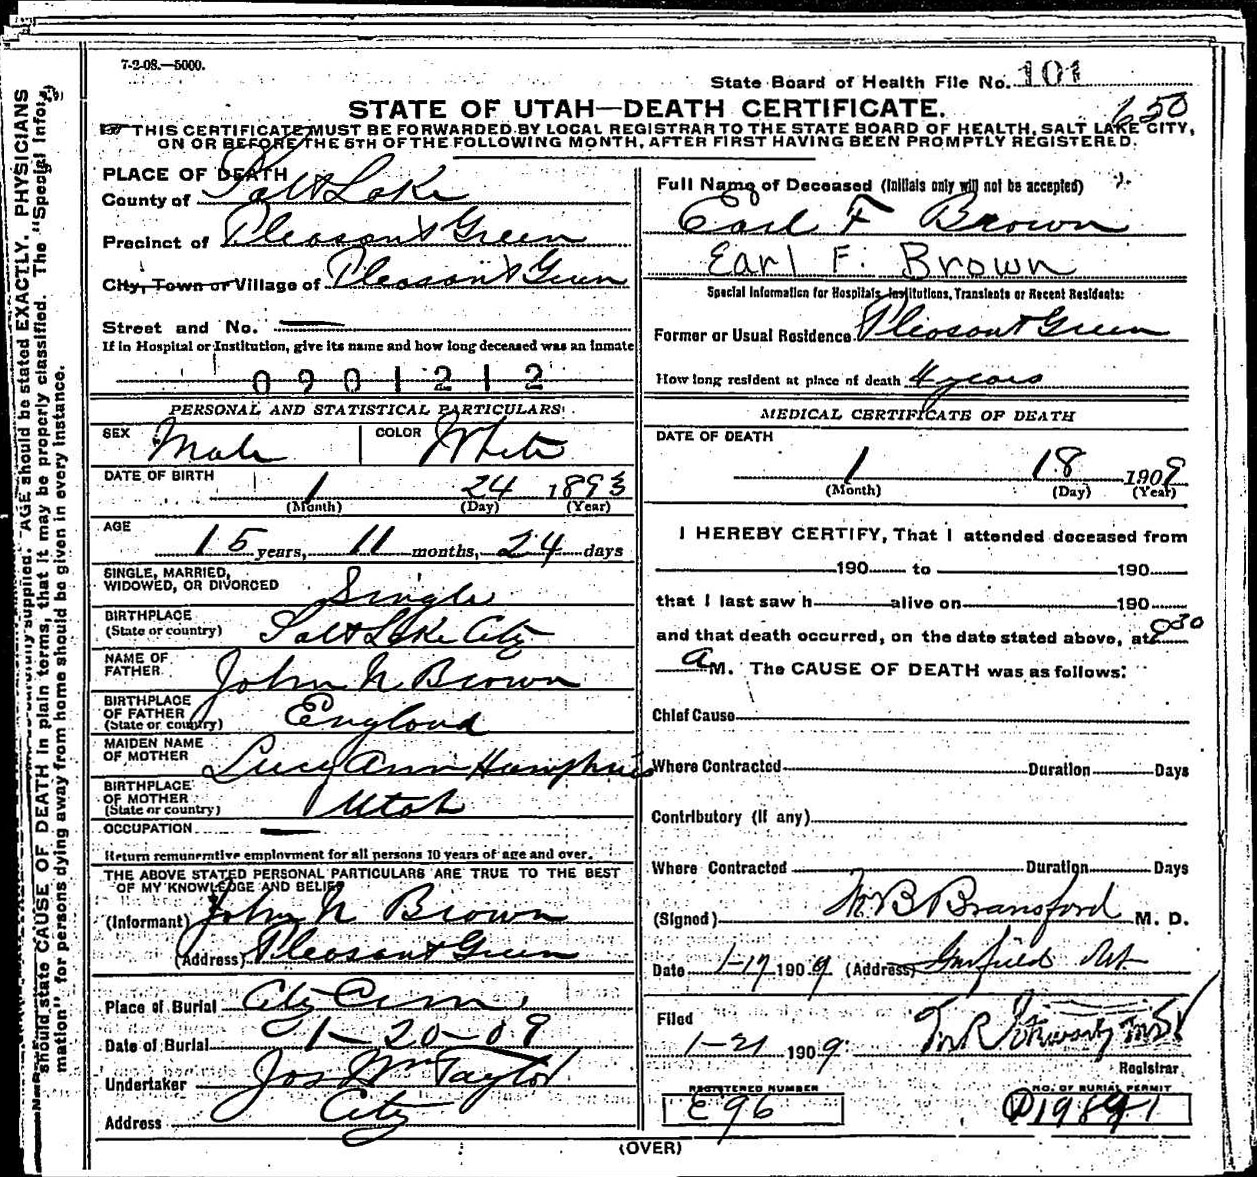 7-2-08.—5000.
State Board of Health File No. 101
650
STATE OF UTAH—DEATH CERTIFICATE.
THIS CERTIFICATE MUST BE FORWARDED BY LOCAL REGISTRAR TO THE STATE BOARD OF HEALTH, SALT LAKE CITY,
ON OR BEFORE THE 5TH OF THE FOLLOWING MONTH, AFTER FIRST HAVING BEEN PROMPTLY REGISTERED.
PLACE OF DEATH
County of Salt Lake
Precinct of Pleasant Green
City, Town or Village of Pleasant Green
Street and No. —
If in Hospital or Institution, give its name and how long deceased was an inmate
0901212
PERSONAL AND STATISTICAL PARTICULARS
SEX Male COLOR White
DATE OF BIRTH 1 24 1893
(Month) (Day) (Year)
AGE
15 years, 11 months, 24 days
SINGLE, MARRIED,
WIDOWED, OR DIVORCED Single
BIRTHPLACE
(State or country) Salt Lake City
NAME OF
FATHER John N Brown
BIRTHPLACE
OF FATHER
(State or country) England
MAIDEN NAME
OF MOTHER Lucy Ann Humphries
BIRTHPLACE
OF MOTHER
(State or country) Utah
OCCUPATION —
Return remunerative employment for all persons 10 years of age and over.
THE ABOVE STATED PERSONAL PARTICULARS ARE TRUE TO THE BEST
OF MY KNOWLEDGE AND BELIEF
(Informant) John N Brown
(Address) Pleasant Green
Place of Burial City Cem
Date of Burial 1-20-09
Undertaker Jos Wm Taylor
Address City
Full Name of Deceased (Initials only will not be accepted)
Earl F Brown
Earl F. Brown
Special Information for Hospitals, Institutions, Transients or Recent Residents:
Former or Usual Residence Pleasant Green
How long resident at place of death 4 years
MEDICAL CERTIFICATE OF DEATH
DATE OF DEATH
1 18 1909
(Month) (Day) (Year)
I HEREBY CERTIFY, That I attended deceased from
190 to 190
that I last saw h alive on 190
and that death occurred, on the date stated above, at 930
a M. The CAUSE OF DEATH was as follows:
Chief Cause
Where Contracted Duration Days
Contributory (if any)
Where Contracted Duration Days
(Signed) Wm B Bransford M. D.
Date 1-17 1909 (Address) Garfield Ut
Filed
1-21 1909
Registrar
REGISTERED NUMBER
E96
NO. OF BURIAL PERMIT
(OVER)
should state CAUSE OF DEATH in plain terms, that it may be properly classified. The "Special Infor-
mation" for persons dying away from home should be given in every instance.
supplied. AGE should be stated EXACTLY. PHYSICIANS